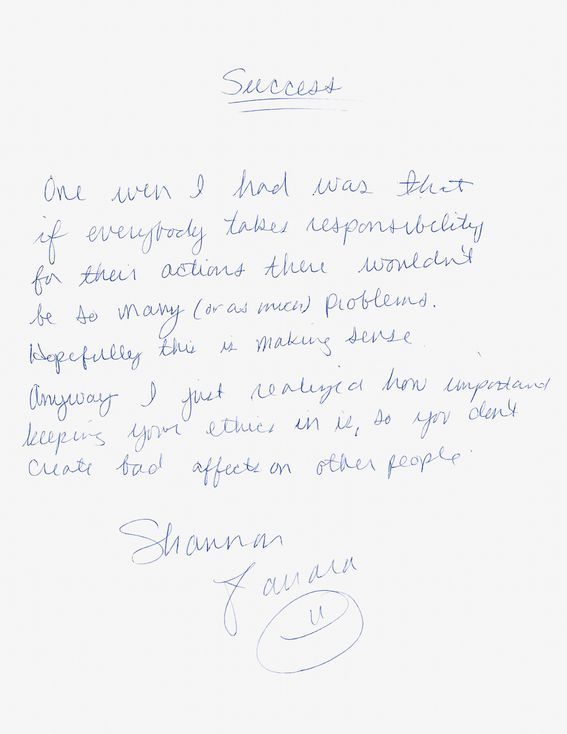 Success
One win I had was that
if everybody takes responsibility
for their actions there wouldn't
be so many (or as much) problems.
Hopefully this is making sense.
Anyway I just realized how important
keeping your ethics in is, so you don't
create bad affects on other people.
Shannon